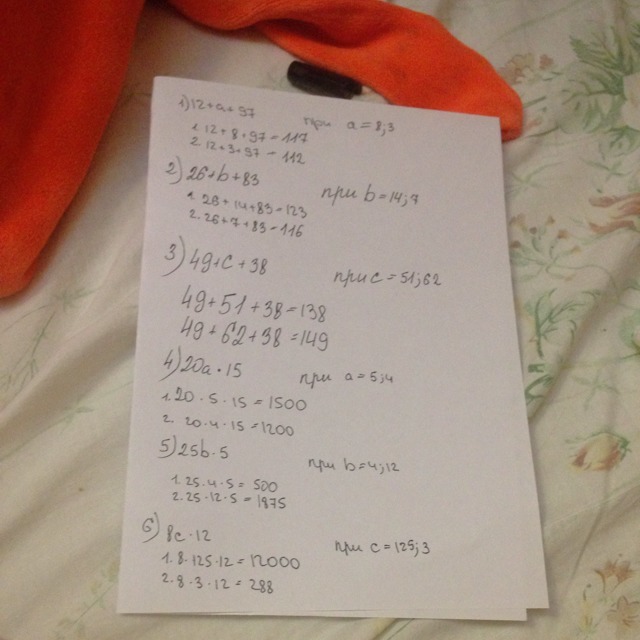 1) 12+a+97 при a=8;3
1. 12+8+97=117
2. 12+3+97=112
2) 26+b+83 при b=14;7
1. 26+14+83=123
2. 26+7+83=116
3) 49+c+38 при c=51;62
49+51+38=138
49+62+38=149
4) 20a·15 при a=5;4
1. 20·5·15=1500
2. 20·4·15=1200
5) 25b·5 при b=4;12
1. 25·4·5=500
2. 25·12·5=1875
6) 8c·12 при c=125;3
1. 8·125·12=12000
2. 8·3·12=288